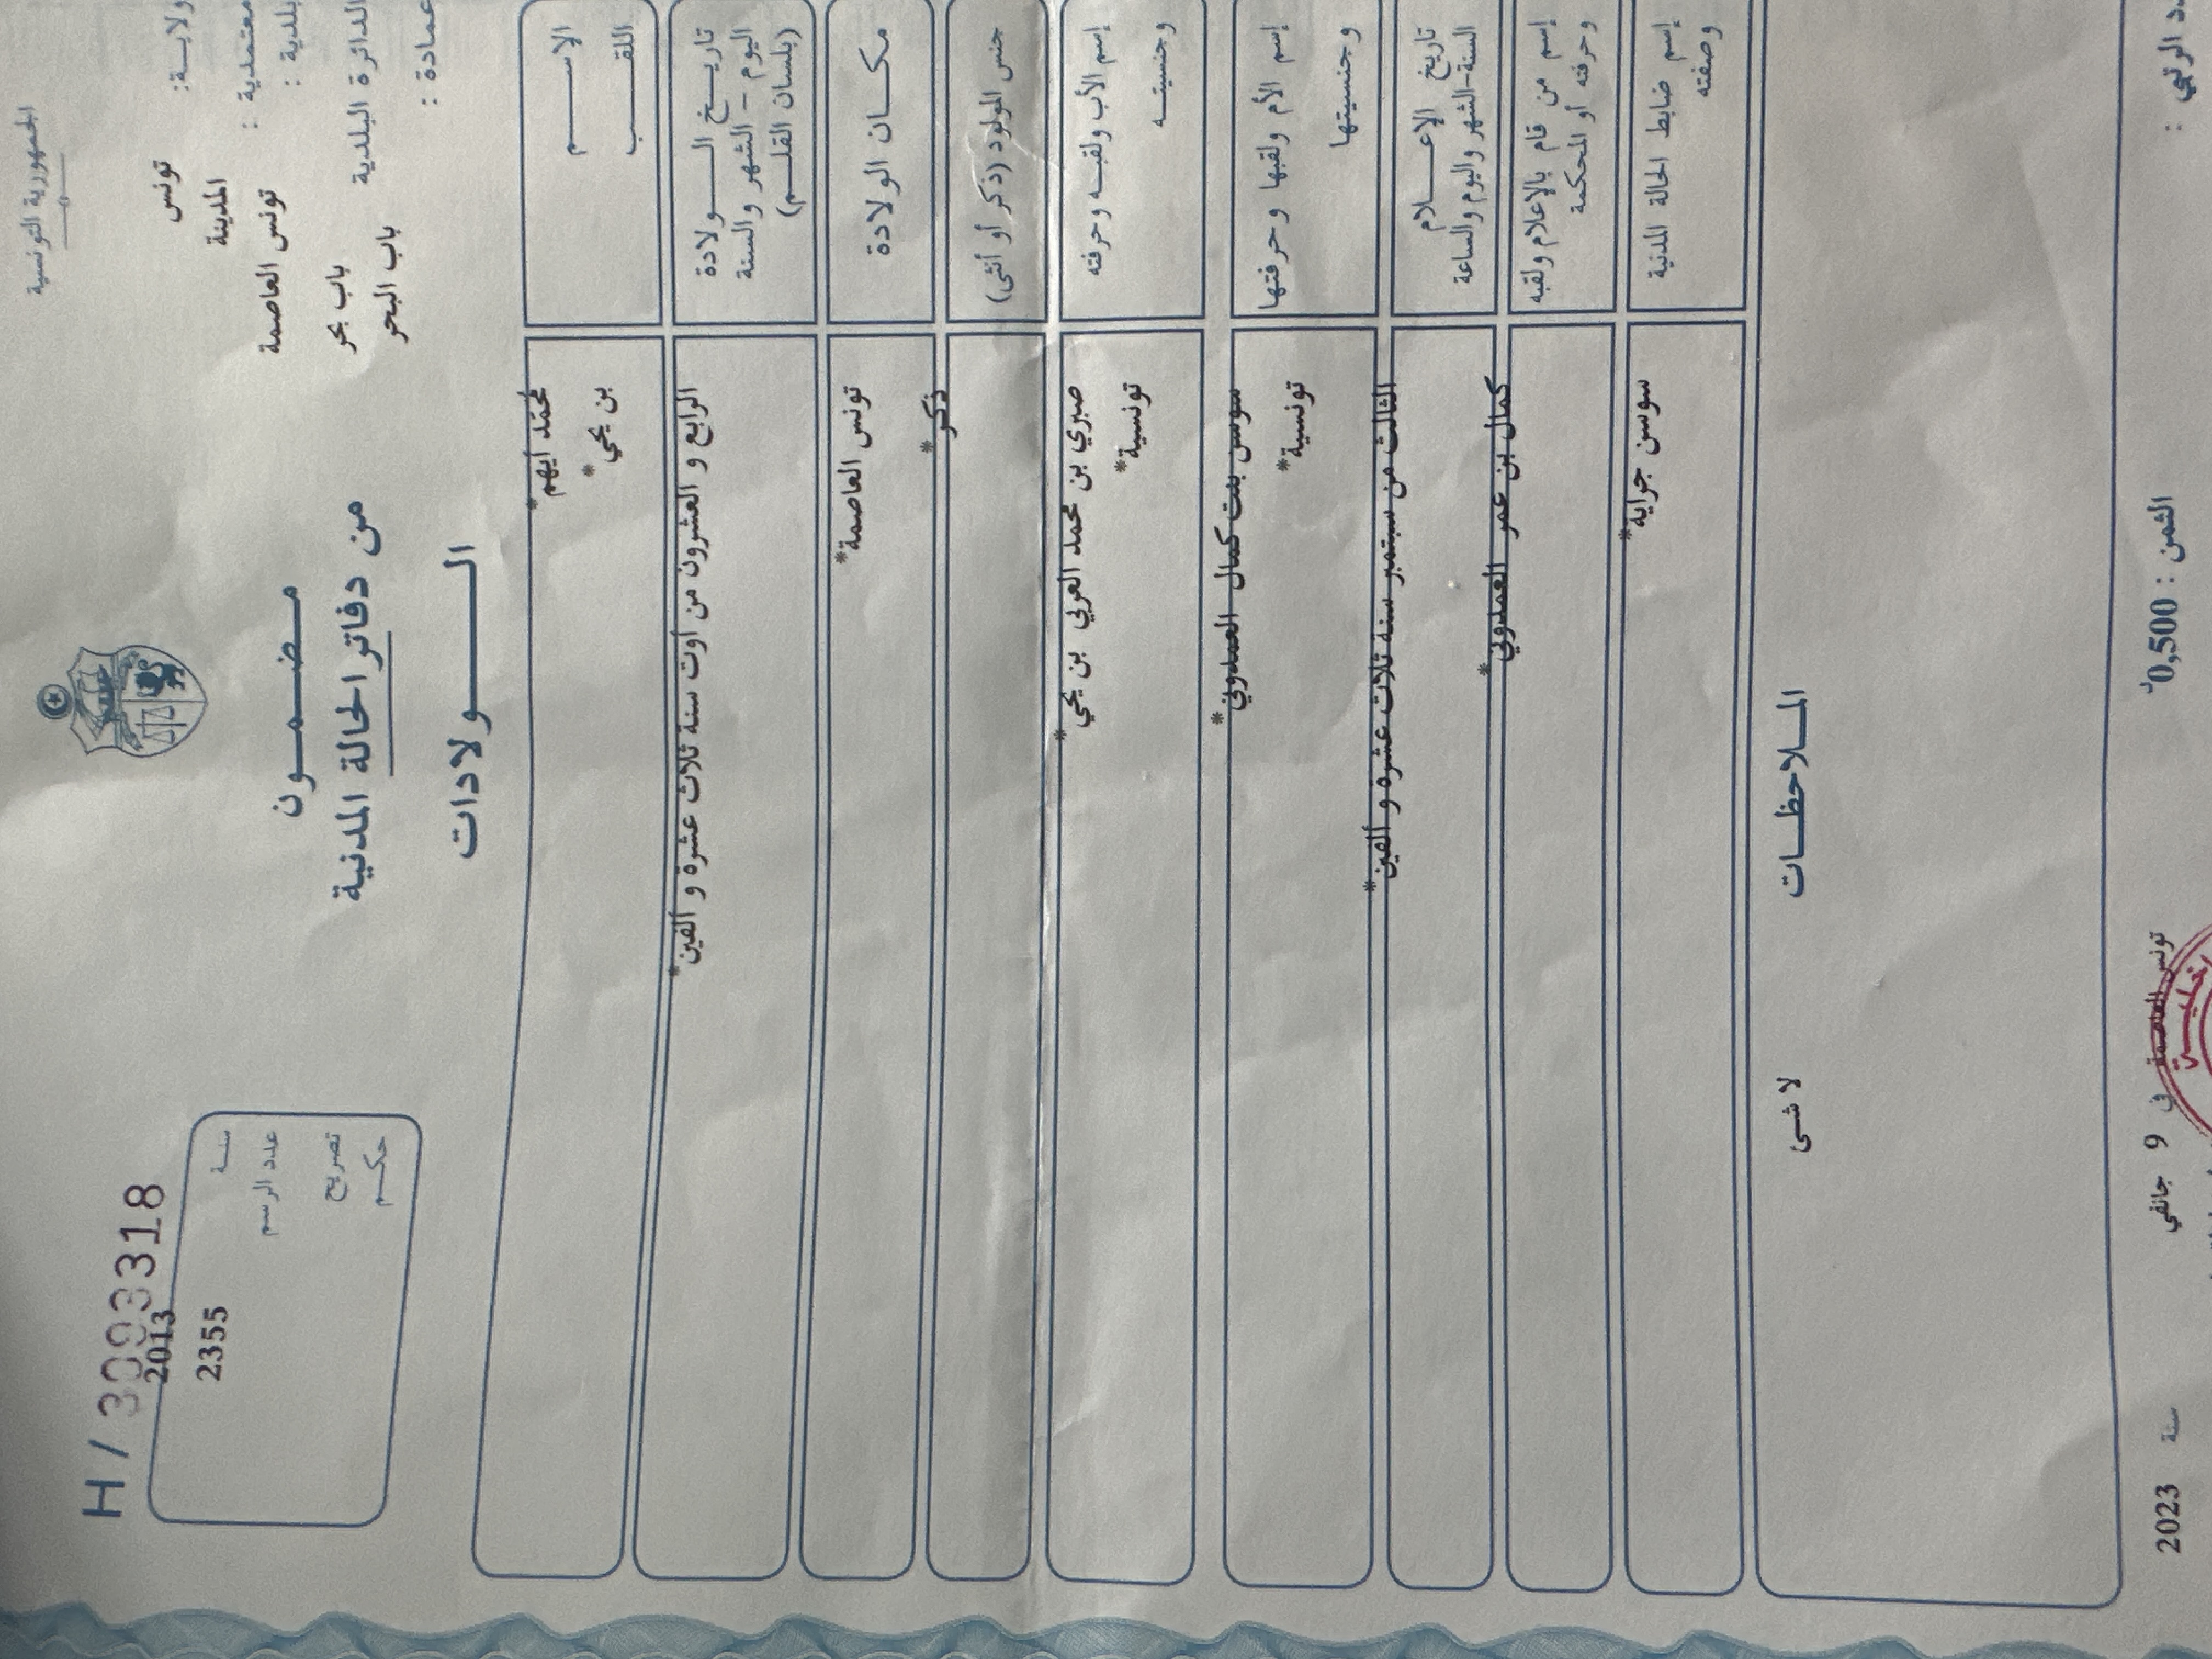 الجمهورية التونسية
ولاية: تونس
معتمدية : المدينة
بلدية : تونس العاصمة
الدائرة البلدية باب بحر
عمادة : باب البحر
H / 3093318
سنة 2013
عدد الرسم 2355
تصريح
حكم
مضمون
من دفاتر الحالة المدنية
الولادات
الاسم محمد أيهم*
اللقب بن يحي*
تاريخ الولادة الرابع و العشرون من أوت سنة ثلاث عشرة و ألفين*
اليوم - الشهر والسنة
(بلسان القلم)
مكان الولادة تونس العاصمة*
جنس المولود (ذكر أو أنثى) ذكر*
إسم الأب ولقبه وحرفته صبري بن محمد العربي بن يحي*
وجنسيته تونسية*
إسم الأم ولقبها وحرفتها سوسن بنت كمال العمدوني*
وجنسيتها تونسية*
تاريخ الإعلام الثالث من سبتمبر سنة ثلاث عشرة و ألفين*
السنة-الشهر واليوم والساعة
إسم من قام بالإعلام ولقبه كمال بن عمر العمدوني*
وحرفته أو المحكمة
إسم ضابط الحالة المدنية سوسن جراية*
وصفته
الملاحظات
لا شئ
الرتبي :
الثمن : 0,500د
تونس العاصمة في 9 جانفي سنة 2023